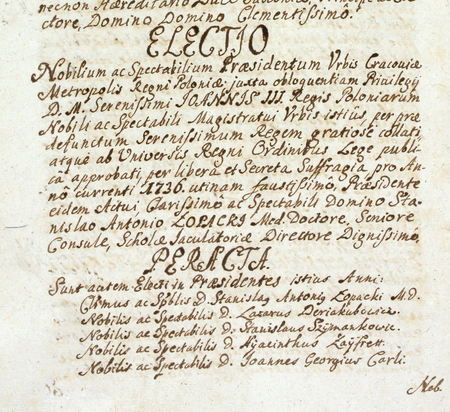 necnon Hæreditario Duce Saxoniæ, Principe
ctore, Domino Domino Clementissimo.
ELECTIO
Nobilium ac Spectabilium Præsidentum Urbis Cracoviæ
Metropolis Regni Poloniæ, juxta obloquentiam Privilegij
D. M. Serenissimi IOANNIS III Regis Poloniarum
Nobili ac Spectabili Magistratui Urbis istius, per præ
defunctum Serenissimum Regem gratiose collati,
atque ab Universis Regni Ordinibus Lege publi-
câ approbati, per libera et Secreta Suffragia pro An-
nô currenti 1736. utinam faustissimo, Præsidente
eidem Actui Clarissimo ac Spectabili Domino Sta-
nislao Antonio ŁOPACKI Med. Doctore, Seniore
Consule, Scholæ Iaculatoriæ Directore Dignissimo,
PERACTA.
Sunt autem Electi in Præsidentes istius Anni:
Clrmus ac Spblis D. Stanislag Antonig Łopacki M. D.
Nobilis ac Spectabilis D. Lazarus Deriakubowicz.
Nobilis ac Spectabilis D. Stanislaus Szymankowic.
Nobilis ac Spectabilis D. Hyacinthus Layfrett.
Nobilis ac Spectabilis D. Ioannes Georgius Carli.
Nob.